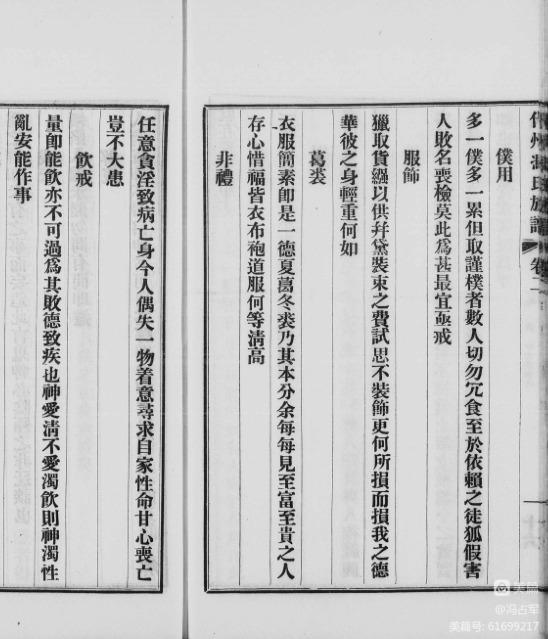 僕用
多一僕多一累但取謹樸者數人切勿冗食至於依賴之徒狐假害
人敗名喪檢莫此爲甚最宜亟戒
服飾
獵取貨繦以供幷黛裝束之費試思不裝飾更何所損而損我之德
華彼之身輕重何如
葛裘
衣服簡素卽是一德夏葛冬裘乃其本分余每每見至富至貴之人
存心惜福皆衣布袍道服何等淸高
非禮
任意貪淫致病亡身今人偶失一物着意尋求自家性命甘心喪亡
豈不大患
飮戒
量卽能飮亦不可過爲其敗德致疾也神愛淸不愛濁飮則神濁性
亂安能作事
美篇
@冯占军
美篇号: 61699217